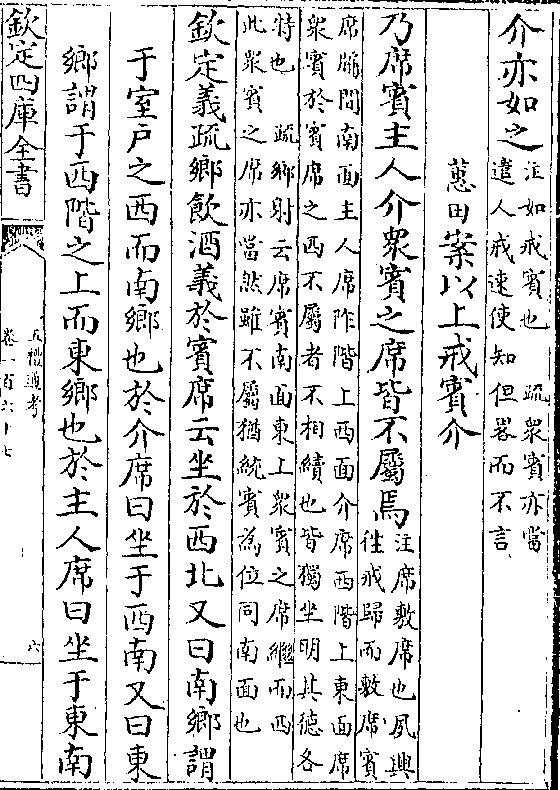 介亦如之注如戒賓也 疏衆賓亦當
遣人戒速使知但畧而不言
蕙田案以上戒賓介
乃席賓主人介衆賓之席皆不屬焉注席敷席也夙興
往戒歸而敷席賓
席牖間南面主人席阼階上西面介席西階上東面席
衆賓於賓席之西不屬者不相續也皆獨坐明其德各
特也 疏鄉射云席賓南面東上衆賓之席繼而西
此衆賓之席亦當然雖不屬猶統賓為位同南面也
欽定義疏鄉飲酒義於賓席云坐於西北又曰南鄉謂
于室戶之西而南鄉也於介席曰坐于西南又曰東
鄉謂于西階之上而東鄉也於主人席曰坐于東南
欽定四庫全書
五禮通考
卷一百六十七
六